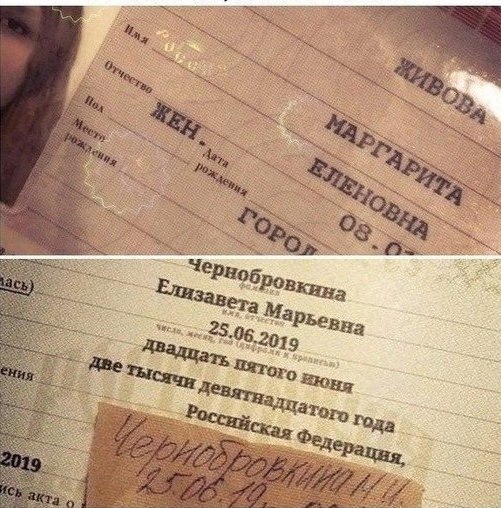 ЖИВОВА
Имя
МАРГАРИТА
Отчество
ЕЛЕНОВНА
Пол
ЖЕН.
Дата рождения
08.0
Место рождения
ГОРОД
лась)
Чернобровкина
фамилия
Елизавета Марьевна
имя, отчество
25.06.2019
число, месяц, год (цифрами и прописью)
двадцать пятого июня
две тысячи девятнадцатого года
ения
Российская Федерация,
2019
Чернобровкина М.И.
25.06.19
ись акта о